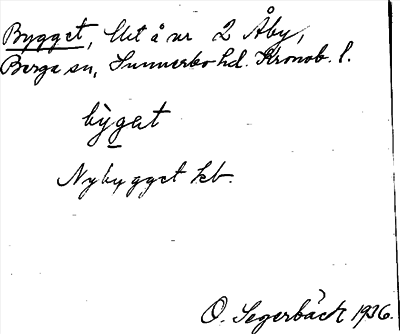 Bygget, lht å nr 2 Åby,
Berga sn, Sunnerbo hd. Kronob. l.
bỳgæt
Nybygget kb.
O. Segerbäck 1936.